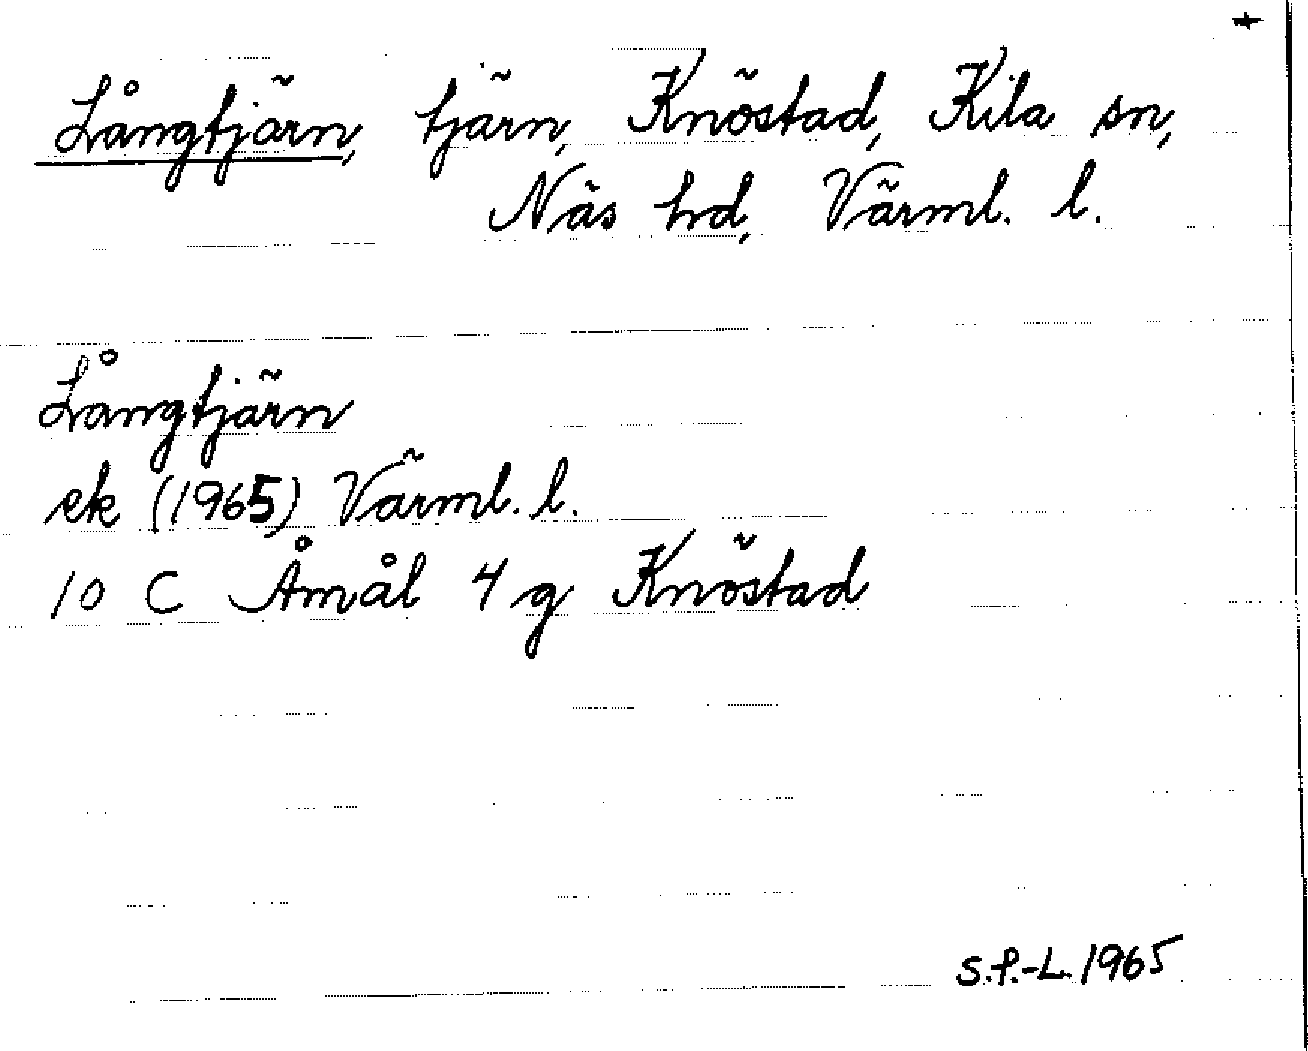 Långtjärn, tjärn, Knöstad, Kila sn,
Näs hd, Värml. l.
Långtjärn
ek (1965) Värml. l.
10 C Åmål 4 g Knöstad
S.f.-L. 1965